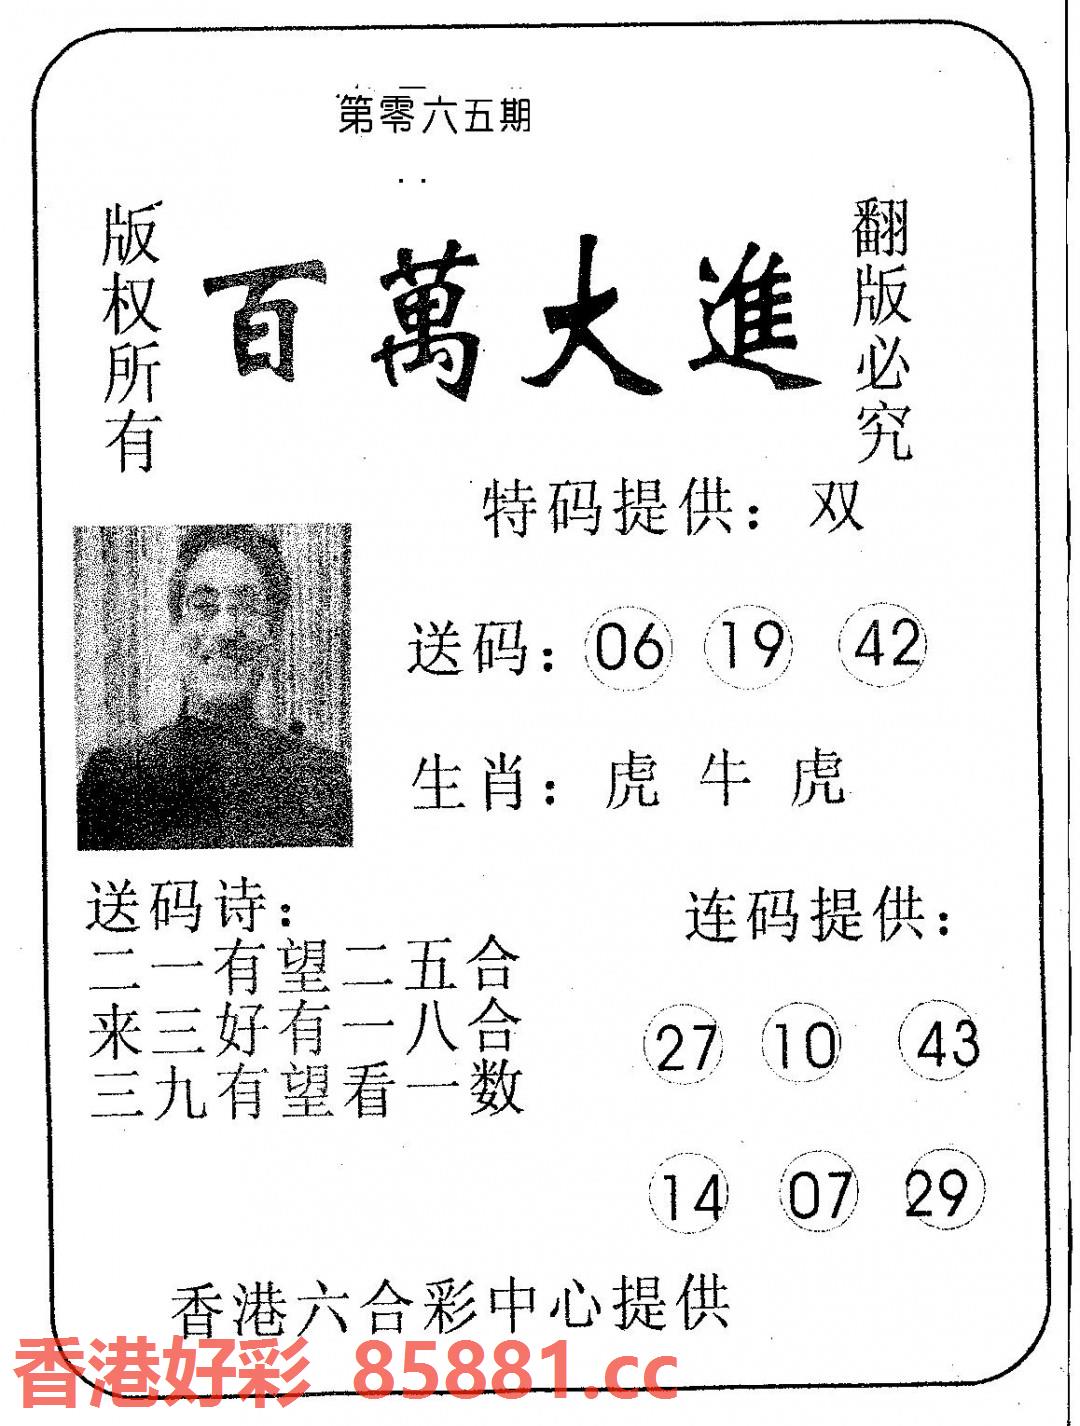 第零六五期
版权所有
百萬大進
翻版必究
特码提供：双
送码：06 19 42
生肖：虎 牛 虎
送码诗：
二一有望二五合
来三好有一八合
三九有望看一数
连码提供：
27 10 43
14 07 29
香港六合彩中心提供
香港好彩 85881.cc